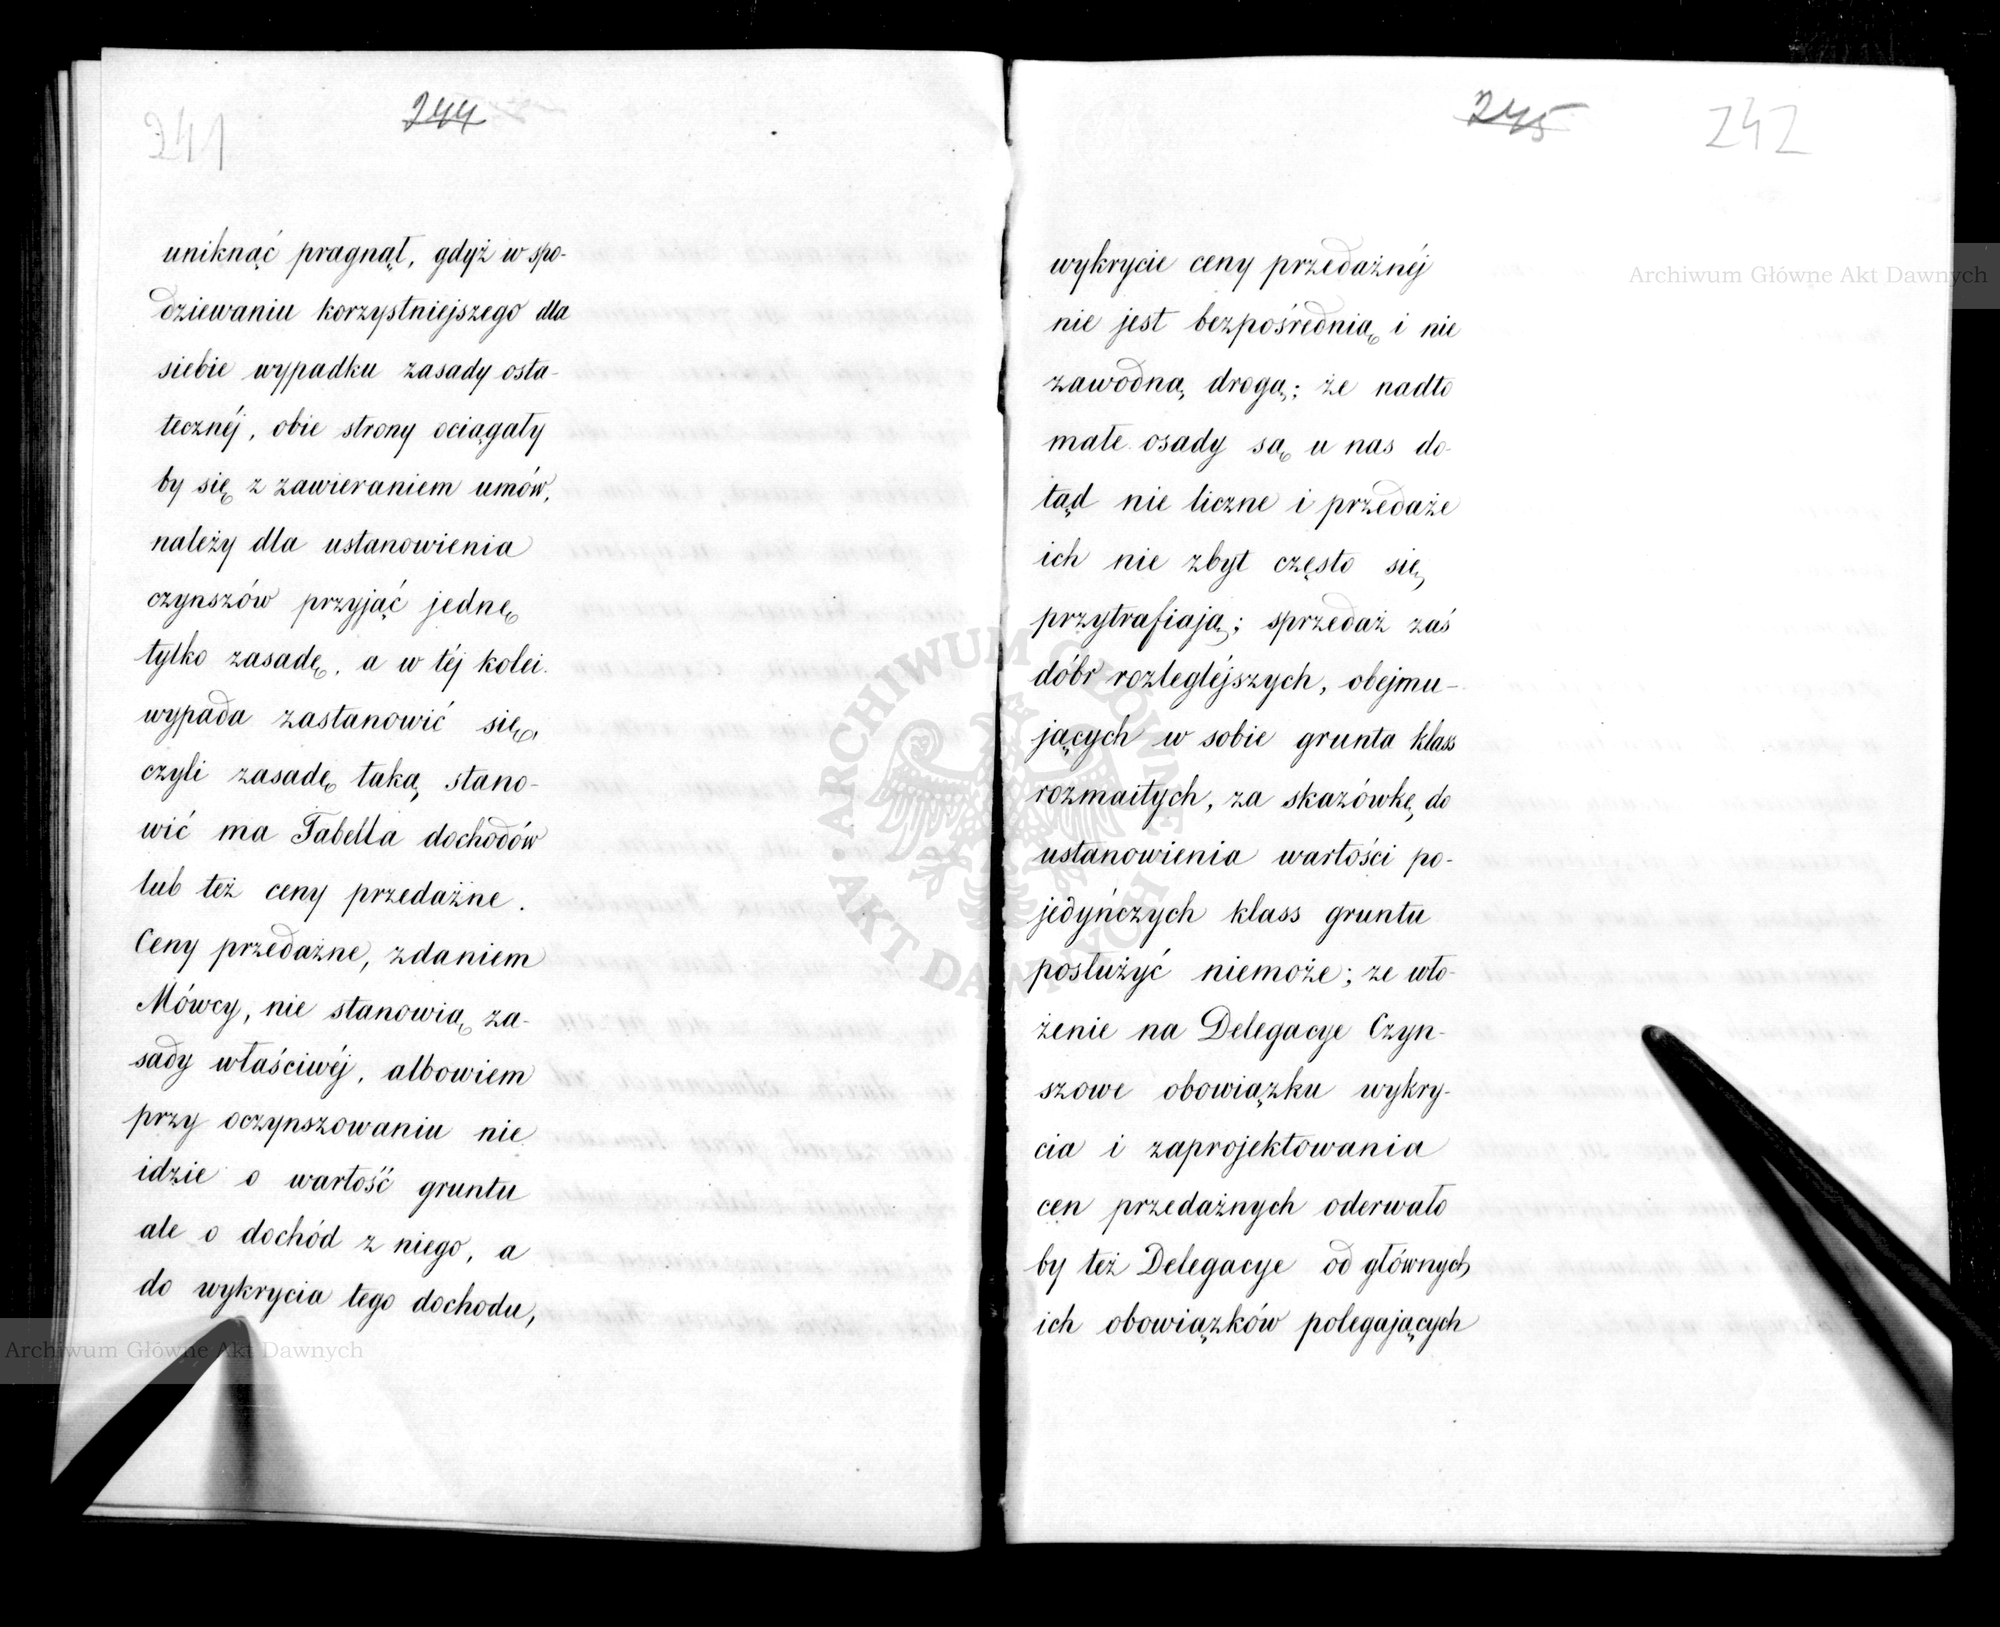 241
244
uniknąć pragnął, gdyż w spo-
dziewaniu korzystniejszego dla
siebie wypadku zasady osta-
tecznéj, obie strony ociągały
by się z zawieraniem umów,
należy dla ustanowienia
czynszów przyjąć jednę
tylko zasadę, a w téj kolei
wypada zastanowić się,
czyli zasadę taką stano-
wić ma Tabella dochodów
lub też ceny przedażne.
Ceny przedażne, zdaniem
Mówcy, nie stanowią za-
sady właściwéj, albowiem
przy oczynszowaniu nie
idzie o wartość gruntu
ale o dochód z niego, a
do wykrycia tego dochodu,
Archiwum Główne Akt Dawnych
245
242
Archiwum Główne Akt Dawnych
wykrycie ceny przedażnéj
nie jest bezpośrednią i nie
zawodną drogą; że nadto
małe osady są u nas do-
tąd nie liczne i przedaże
ich nie zbyt często się
przytrafiają; sprzedaż zaś
dóbr rozległéjszych, obejmu-
jących w sobie grunta klass
rozmaitych, za skazówkę do
ustanowienia wartości po-
jedyńczych klass gruntu
posłużyć niemoże; że wło-
żenie na Delegacye Czyn-
szowe obowiązku wykry-
cia i zaprojektowania
cen przedażnych oderwało
by też Delegacye od głównych
ich obowiązków polegających
ARCHIWUM GŁÓWNE AKT DAWNYCH